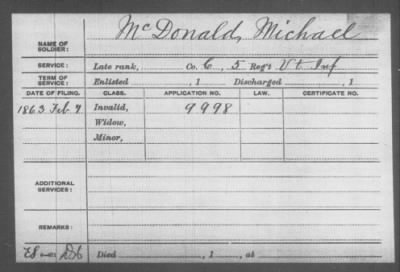 NAME OF SOLDIER: McDonald, Michael
SERVICE: Late rank, Co. C, 5 Reg't Vt Inf
TERM OF SERVICE: Enlisted , 1 Discharged , 1
DATE OF FILING. CLASS. APPLICATION NO. LAW. CERTIFICATE NO.
1863 Feb 7 Invalid, 9998
Widow,
Minor,
ADDITIONAL SERVICES:
REMARKS:
Died , 1 , at